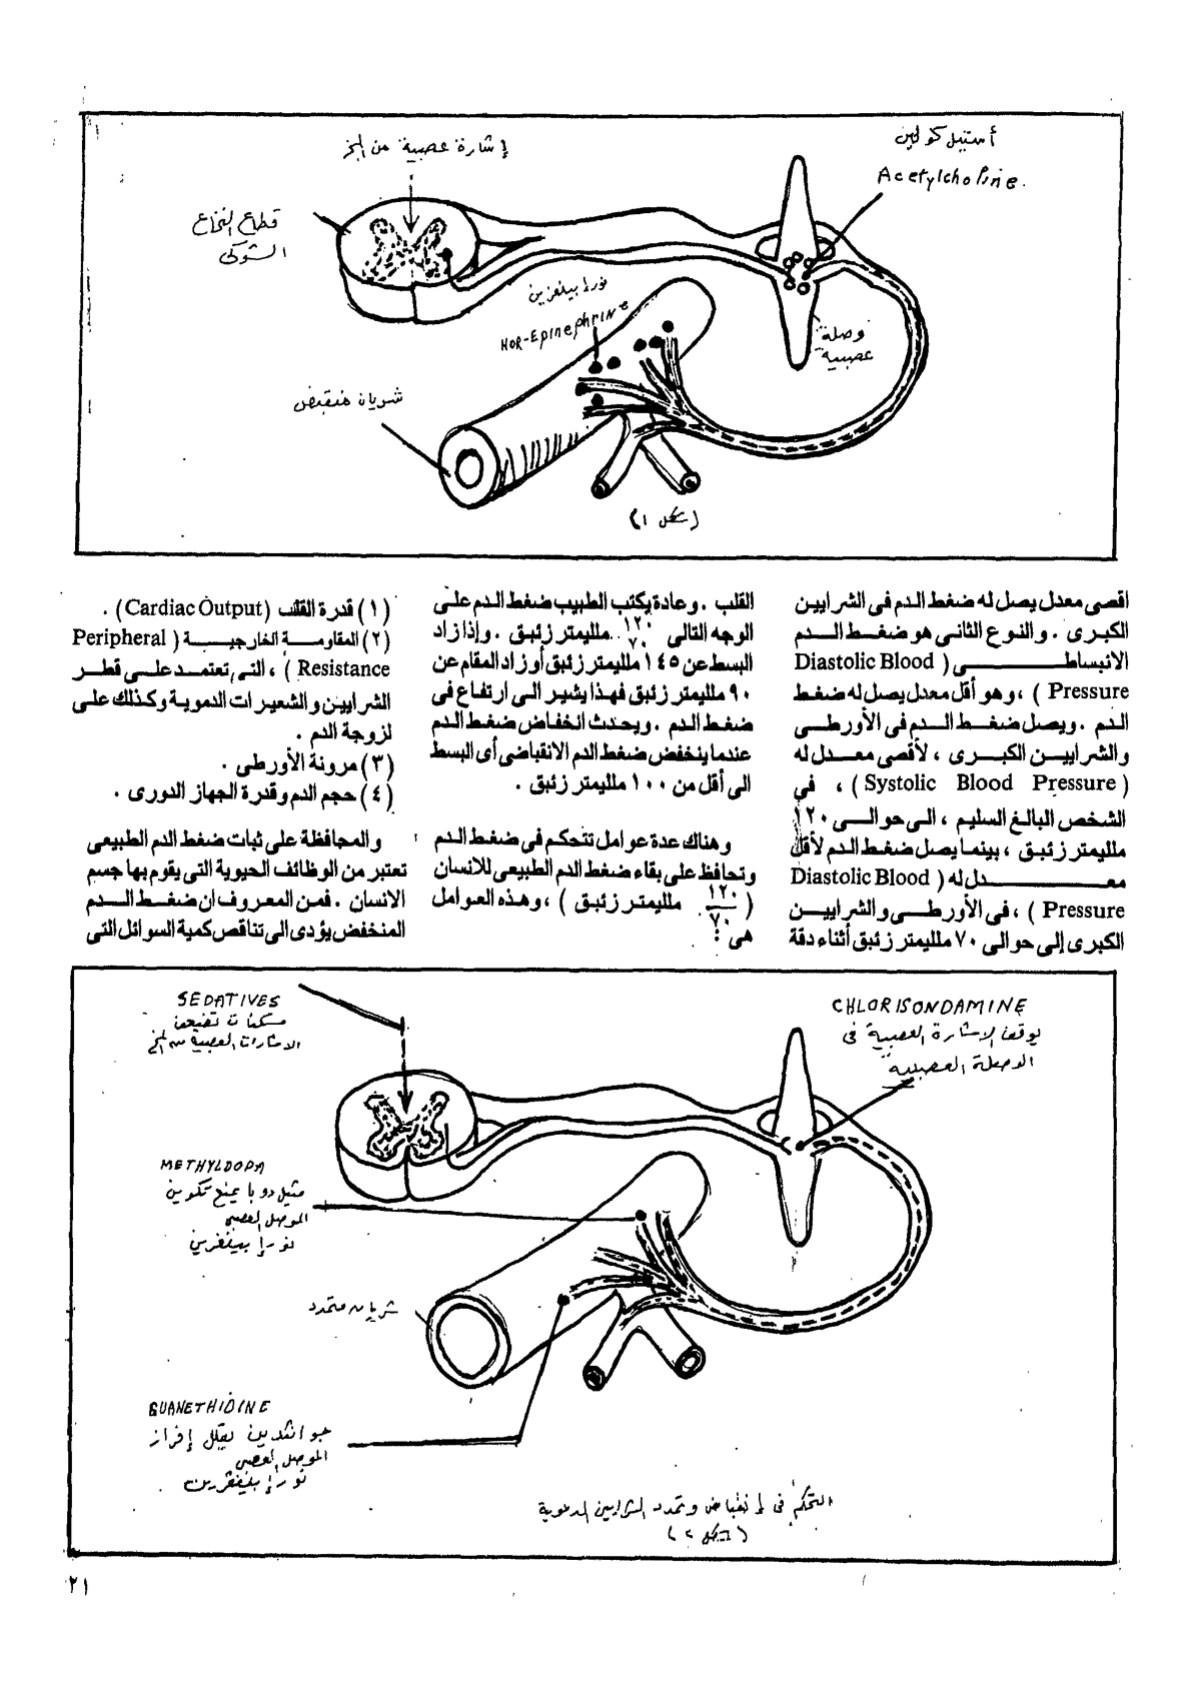 إشارة عصبية من المخ
أستيل كولين
Acetylcholine.
قطاع النخاع
الشوكى
نورإبينفرين
NOR-Epinephrine
وصلة
عصبية
شريان منقبض
(شكل ١)
اقصى معدل يصل له ضغط الدم فى الشرايين
الكبرى . والنوع الثانى هو ضغط الدم
الانبساطى ( Diastolic Blood
Pressure ) ، وهو أقل معدل يصل له ضغط
الدم . ويصل ضغط الدم فى الأورطى
والشرايين الكبرى ، لأقصى معدل له
( Systolic Blood Pressure ) ، في
الشخص البالغ السليم ، الى حوالى ١٢٠
ملليمتر زئبق ، بينما يصل ضغط الدم لأقل
معدل له ( Diastolic Blood
Pressure ) ، فى الأورطى والشرايين
الكبرى إلى حوالى ٧٠ ملليمتر زئبق أثناء دقة
القلب . وعادة يكتب الطبيب ضغط الدم على
الوجه التالى ١٢٠/٧٠ ملليمتر زئبق . وإذا زاد
البسط عن ١٤٥ ملليمتر زئبق أو زاد المقام عن
٩٠ ملليمتر زئبق فهذا يشير الى ارتفاع فى
ضغط الدم . ويحدث انخفاض ضغط الدم
عندما ينخفض ضغط الدم الانقباضى أى البسط
الى أقل من ١٠٠ ملليمتر زئبق .
وهناك عدة عوامل تتحكم فى ضغط الدم
وتحافظ على بقاء ضغط الدم الطبيعى للانسان
( ١٢٠/٧٠ ملليمتر زئبق ) ، وهذه العوامل
هى :
(١) قدرة القلب (Cardiac Output) .
(٢) المقاومة الخارجية ( Peripheral
Resistance ) ، التى تعتمد على قطر
الشرايين والشعيرات الدموية وكذلك على
لزوجة الدم .
(٣) مرونة الأورطى .
(٤) حجم الدم وقدرة الجهاز الدورى .
والمحافظة على ثبات ضغط الدم الطبيعى
تعتبر من الوظائف الحيوية التى يقوم بها جسم
الانسان . فمن المعروف ان ضغط الدم
المنخفض يؤدى الى تناقص كمية السوائل التى
SEDATIVES
مسكنات تضعف
الاشارات العصبية من المخ
CHLORISONDAMINE
يوقف الإشارة العصبية فى
الوصلة العصبية
METHYLDOPA
مثيل دوبا يمنع تكوين
الموصل العصبى
نورإبينفرين
شريان متمدد
GUANETHIDINE
جوانثدين يقلل إفراز
الموصل العصبى
نورإبنيفرين
التحكم فى إنقباض وتمدد الشرايين الدموية
(شكل ٢)
٢١